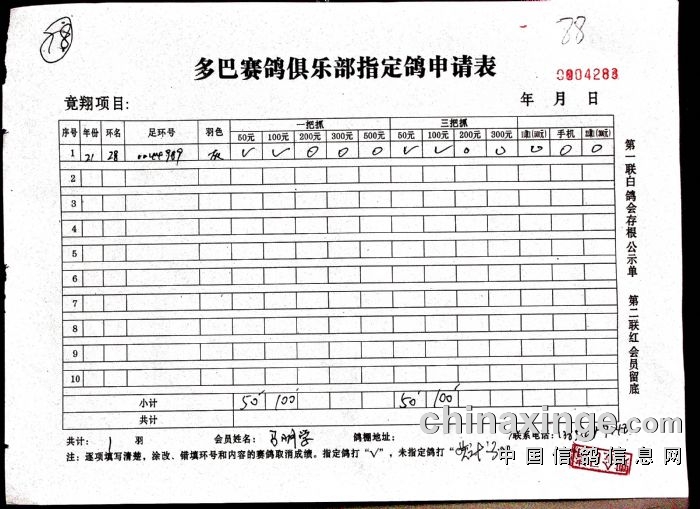 78
78
多巴赛鸽俱乐部指定鸽申请表
0004283
竟翔项目: 年 月 日
序号 年份 环名 足环号 羽色 一把抓 三把抓
50元 100元 200元 300元 500元 50元 100元 200元 300元 手机
1 21 28 0044989 灰 V V 0 0 0 V V 0 0 0 0 0
2
3
4
5
6
7
8
9
10
小计 50 100 50 100
共计
共计: 1 羽 会员姓名: 鸽棚地址: 联系电话:
注:逐项填写清楚,涂改、错填环号和内容的赛鸽取消成绩。指定鸽打“V”,未指定鸽打“
第一联白鸽会存根公示单 第二联红会员留底
chinaxinge.com
中国信鸽信息网